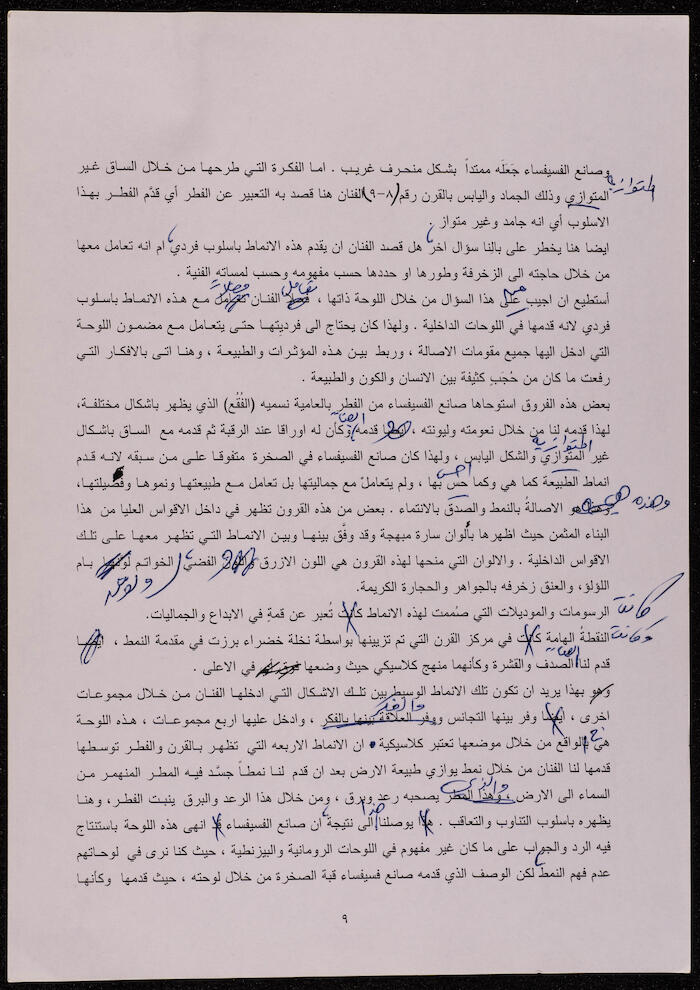 وصانع الفسيفساء جَعَلَه ممتداً بشكل منحرف غريب . اما الفكرة التي طرحها من خلال الساق غير
المتوازي وذلك الجماد واليابس بالقرن رقم (٨-٩) الفنان هنا قصد به التعبير عن الفطر أي قدَّم الفطر بهذا
الاسلوب أي انه جامد وغير متوازٍ .
ايضا هنا يخطر على بالِنا سؤال اخر هل قصد الفنان ان يقدم هذه الانماط باسلوب فردي ام انه تعامل معها
من خلال حاجته الى الزخرفة وطورها او حددها حسب مفهومه وحسب لمساته الفنية .
أستطيع ان اجيب على هذا السؤال من خلال اللوحة ذاتها ، الفنان تعامل مع هذه الانماط باسلوب
فردي لانه قدمها في اللوحات الداخلية . ولهذا كان يحتاج الى فرديتها حتى يتعامل مع مضمون اللوحة
التي ادخل اليها جميع مقومات الاصالة ، وربط بين هذه المؤثرات والطبيعة ، وهنا اتى بالافكار التي
رفعت ما كان من حُجَب كثيفة بين الانسان والكون والطبيعة .
بعض هذه الفروق استوحاها صانع الفسيفساء من الفطر بالعامية نسميه (الفُقُع) الذي يظهر باشكال مختلفة،
لهذا قدمه لنا من خلال نعومته وليونته ، ايضا قدمه وكأن له اوراقا عند الرقبة ثم قدمه مع الساق باشكال
المتوازية
غير المتوازي والشكل اليابس ، ولهذا كان صانع الفسيفساء في الصخرة متفوقا على من سبقه لانه قدم
احس
انماط الطبيعة كما هي وكما حس بها ، ولم يتعاملْ مع جمالياتها بل تعامل مع طبيعتها ونموها وفصيلتها،
وهذه هي
هو الاصالةُ بالنمط والصدق بالانتماء . بعض من هذه القرون تظهر في داخل الاقواس العليا من هذا
البناء المثمن حيث اظهرها بألوان سارة مبهجة وقد وفَّق بينها وبين الانماط التي تظهر معها على تلك
الاقواس الداخلية . والالوان التي منحها لهذه القرون هي اللون الازرق الفضي الخواتم بام
اللؤلؤ، والعنق زخرفه بالجواهر والحجارة الكريمة.
كانت
الرسومات والموديلات التي صُممت لهذه الانماط كانت تُعبر عن قمةٍ في الابداع والجماليات.
وكانت
النقطةُ الهامة كانت في مركز القرن التي تم تزيينها بواسطة نخلة خضراء برزت في مقدمة النمط ، ايضا
قدم لنا الصدف والقشرة وكأنهما منهج كلاسيكي حيث وضعها في الاعلى .
وهو بهذا يريد ان تكون تلك الانماط الوسيط بين تلك الاشكال التي ادخلها الفنان من خلال مجموعات
والفكر
اخرى ، ايضا وفر بينها التجانس ووفر العلاقة بينها بالفكر ، وادخل عليها اربع مجموعات ، هذه اللوحة
هي بالواقع من خلال موضعها تعتبر كلاسيكية . ان الانماط الاربعه التي تظهر بالقرن والفطر توسطها
قدمها لنا الفنان من خلال نمط يوازي طبيعة الارض بعد ان قدم لنا نمطاً جسَّد فيه المطر المنهمر من
والذي
السماء الى الارض ، وهذا المطر يصحبه رعد وبرق ، ومن خلال هذا الرعد والبرق ينبت الفطر، وهنا
هذا
يظهره باسلوب التناوب والتعاقب . هذا يوصلنا الى نتيجة ان صانع الفسيفساء قد انهى هذه اللوحة باستنتاج
فيه الرد والجواب على ما كان غير مفهوم في اللوحات الرومانية والبيزنطية ، حيث كنا نرى في لوحاتهم
عدم فهم النمط لكن الوصف الذي قدمه صانع فسيفساء قبة الصخرة من خلال لوحته ، حيث قدمها وكأنها
٩